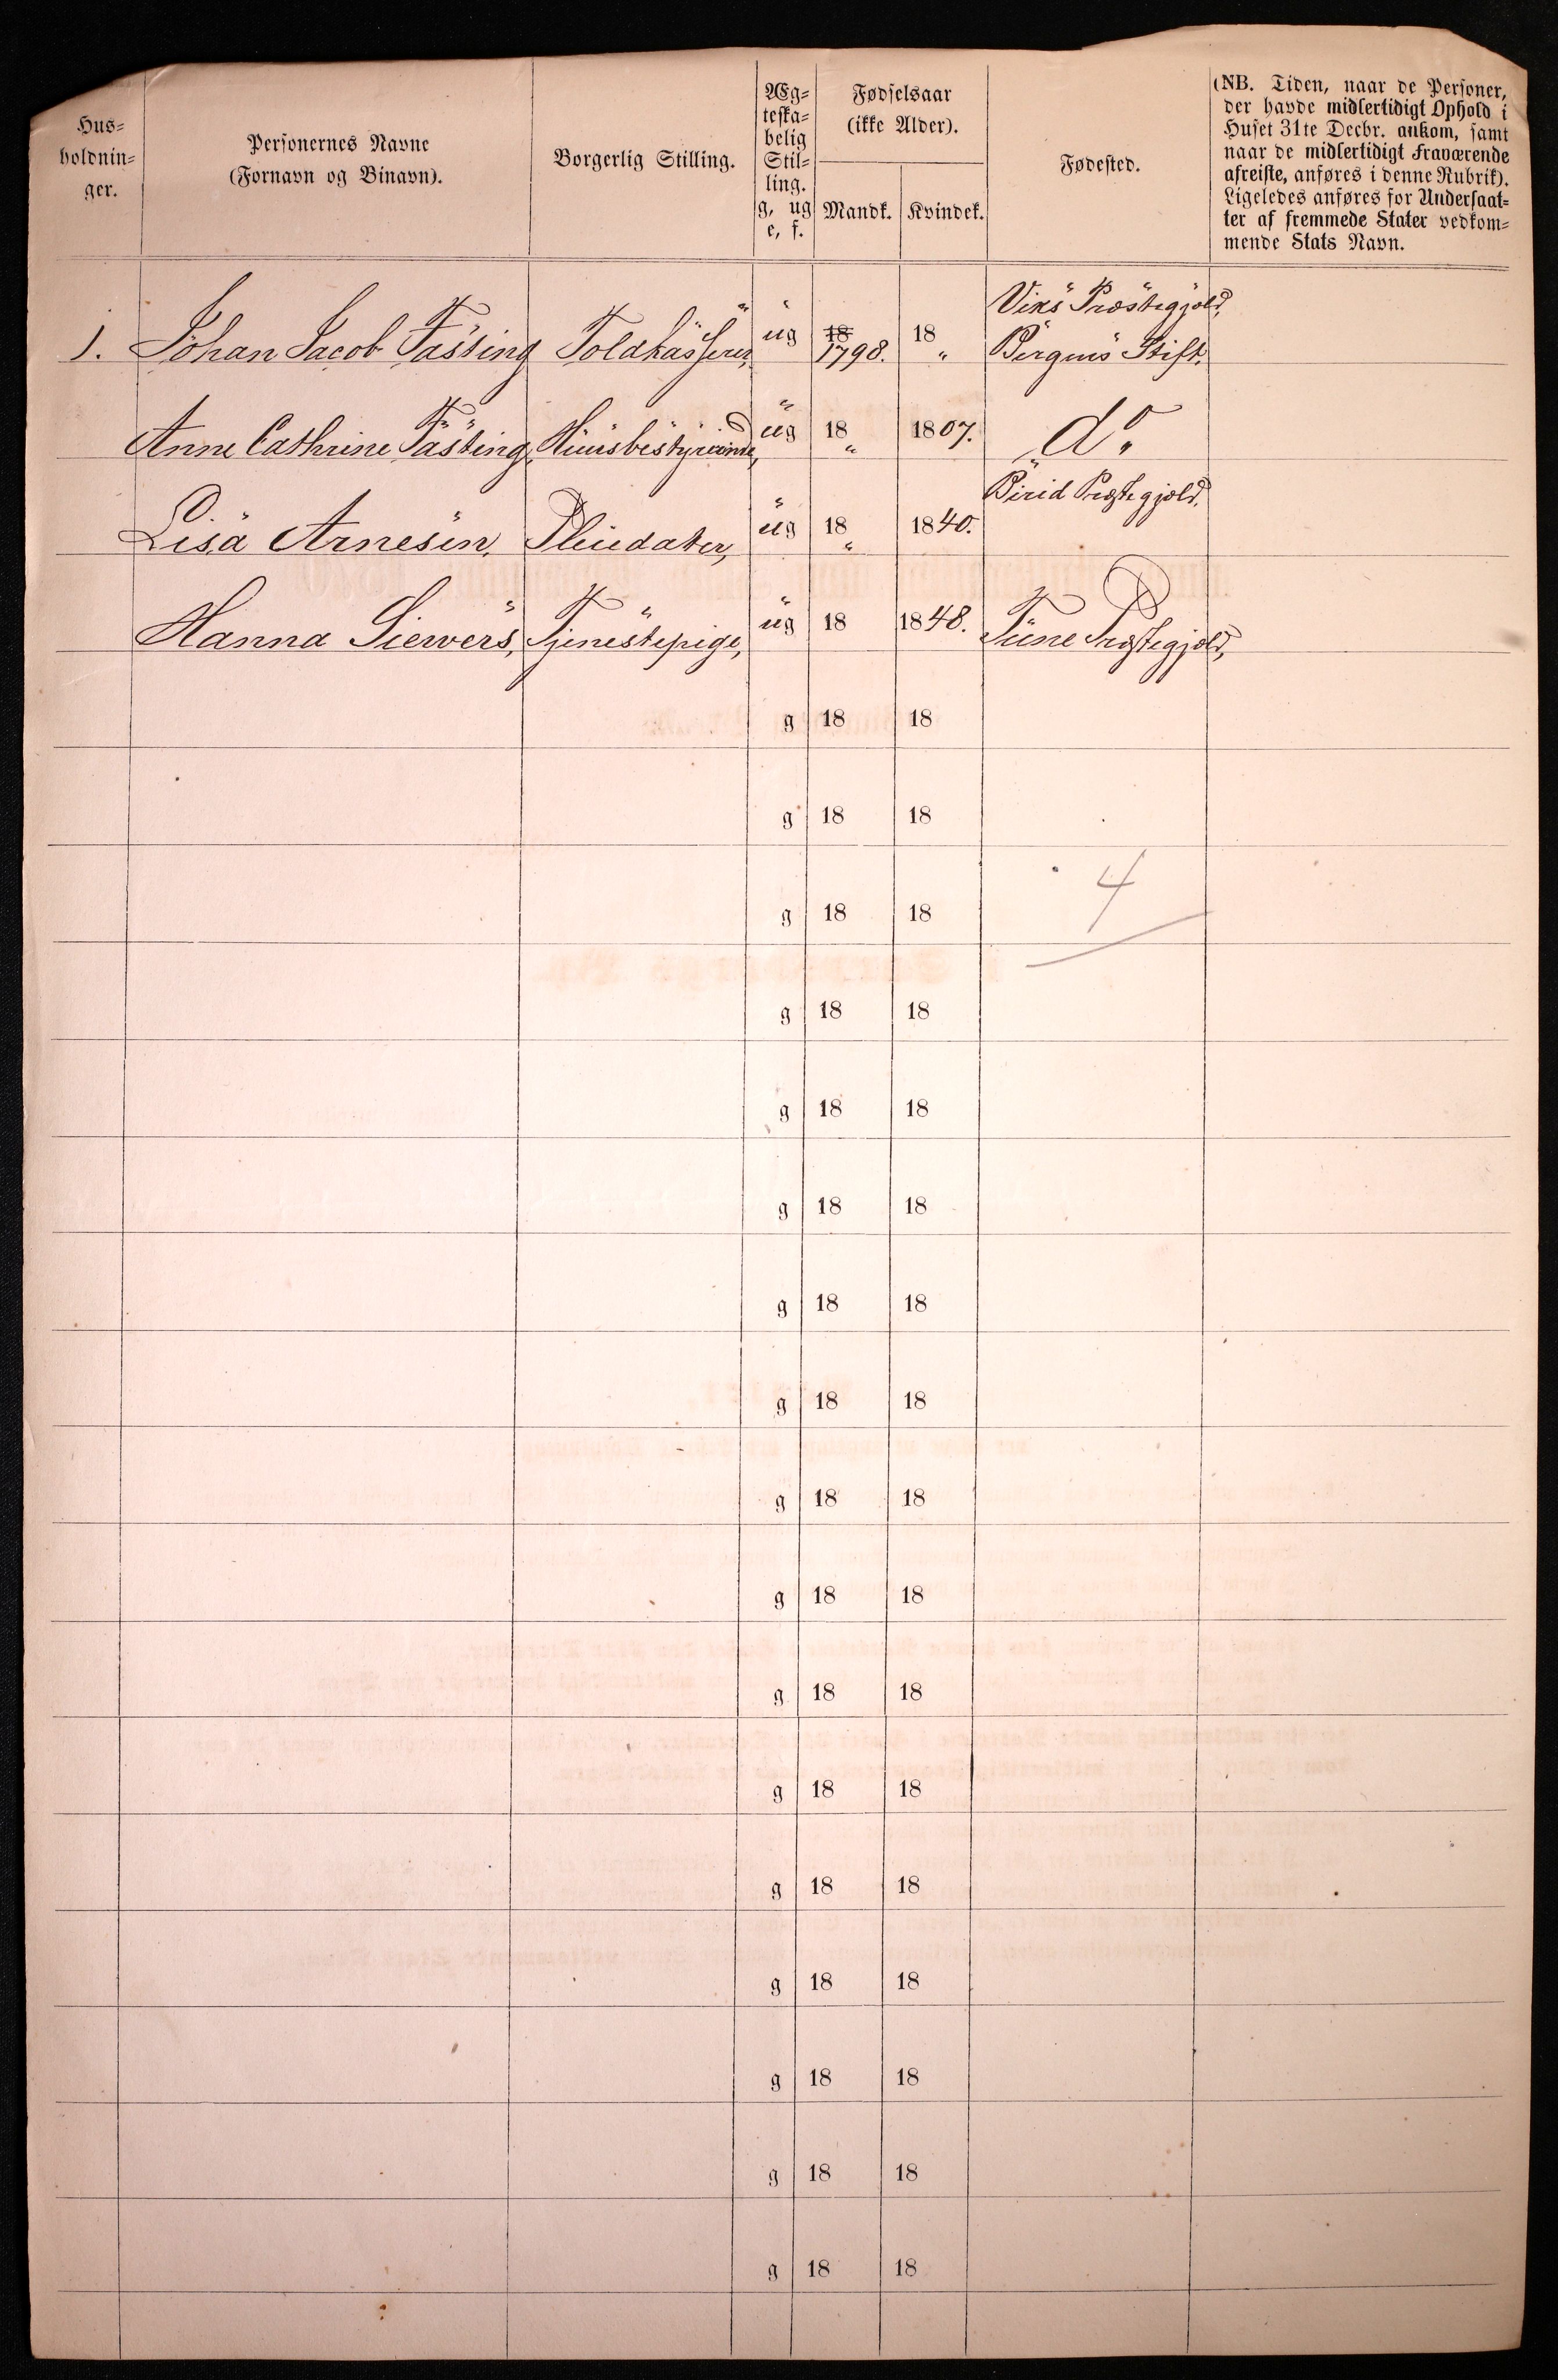 Hus-
holdnin-
ger.
Personernes Navne
(Fornavn og Binavn).
Borgerlig Stilling.
Æg-
teska-
belig
Stil-
ling.
g, ug
e, f.
Fødselsaar
(ikke Alder).
Mandk. Kvindek.
Fødested.
(NB. Tiden, naar de Personer,
der havde midlertidigt Ophold i
Huset 31te Decbr. ankom, samt
naar de midlertidigt Fraværende
afreiste, anføres i denne Rubrik).
Ligeledes anføres for Undersaat-
ter af fremmede Stater vedkom-
mende Stats Navn.
Viks Præstegjeld,
1. Johan Jacob Fasting Toldkasserer, ug 18 1798. 18 " Bergens Stift.
Anne Cathrine Fasting, Huusbestyrerinde, ug 18 " 1807. do
Birid Præstegjeld.
Lisa Arnesen, Pleiedatter, ug 18 " 1840.
Hanna Siewers, Tjenestepige, ug 18 1848. Tune Præstegjeld,
g 18 18
g 18 18
g 18 18 4
g 18 18
g 18 18
g 18 18
g 18 18
g 18 18
g 18 18
g 18 18
g 18 18
g 18 18
g 18 18
g 18 18
g 18 18
g 18 18
g 18 18